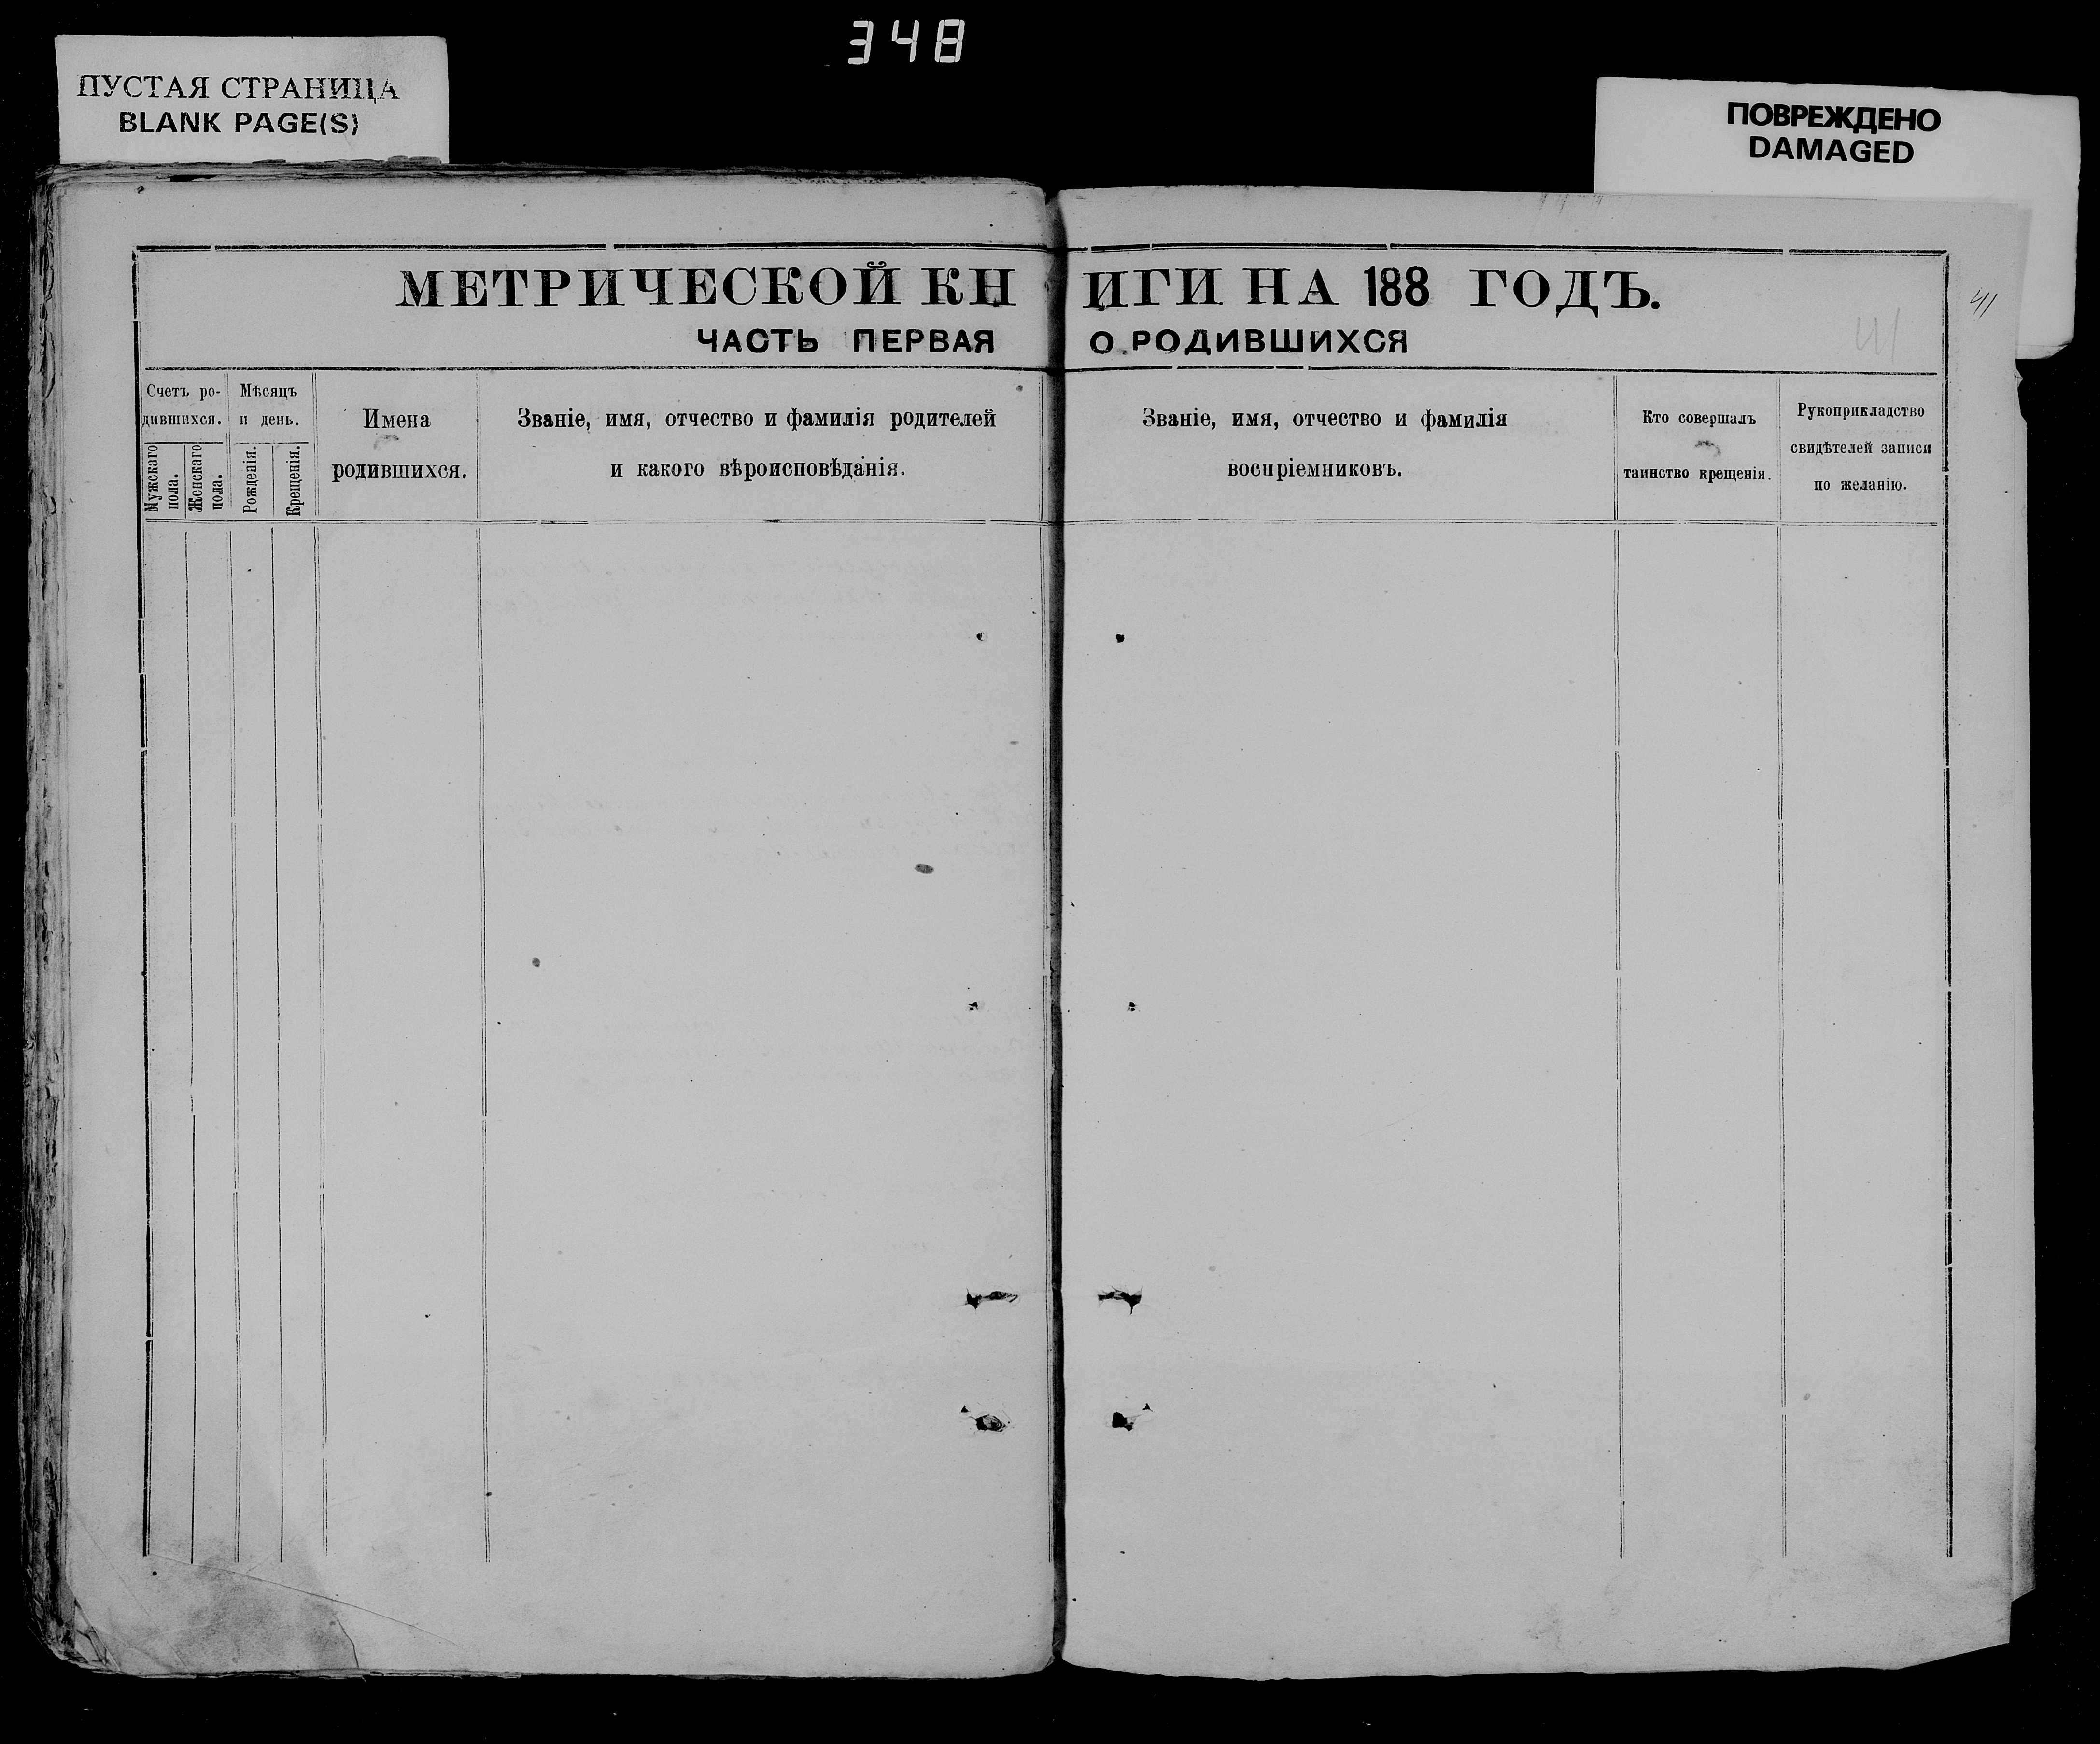 348
ПУСТАЯ СТРАНИЦА
BLANK PAGE(S)
ПОВРЕЖДЕНО
DAMAGED
МЕТРИЧЕСКОЙ КНИГИ НА 188 ГОДЪ.
ЧАСТЬ ПЕРВАЯ О РОДИВШИХСЯ
41
41
Счетъ ро-
дившихся.
Мужскаго
пола.
Женскаго
пола.
Мѣсяцъ
и день.
Рожденія.
Крещенія.
Имена
родившихся.
Званіе, имя, отчество и фамилія родителей
и какого вѣроисповѣданія.
Званіе, имя, отчество и фамилія
воспріемниковъ.
Кто совершалъ
таинство крещенія.
Рукоприкладство
свидѣтелей записи
по желанію.